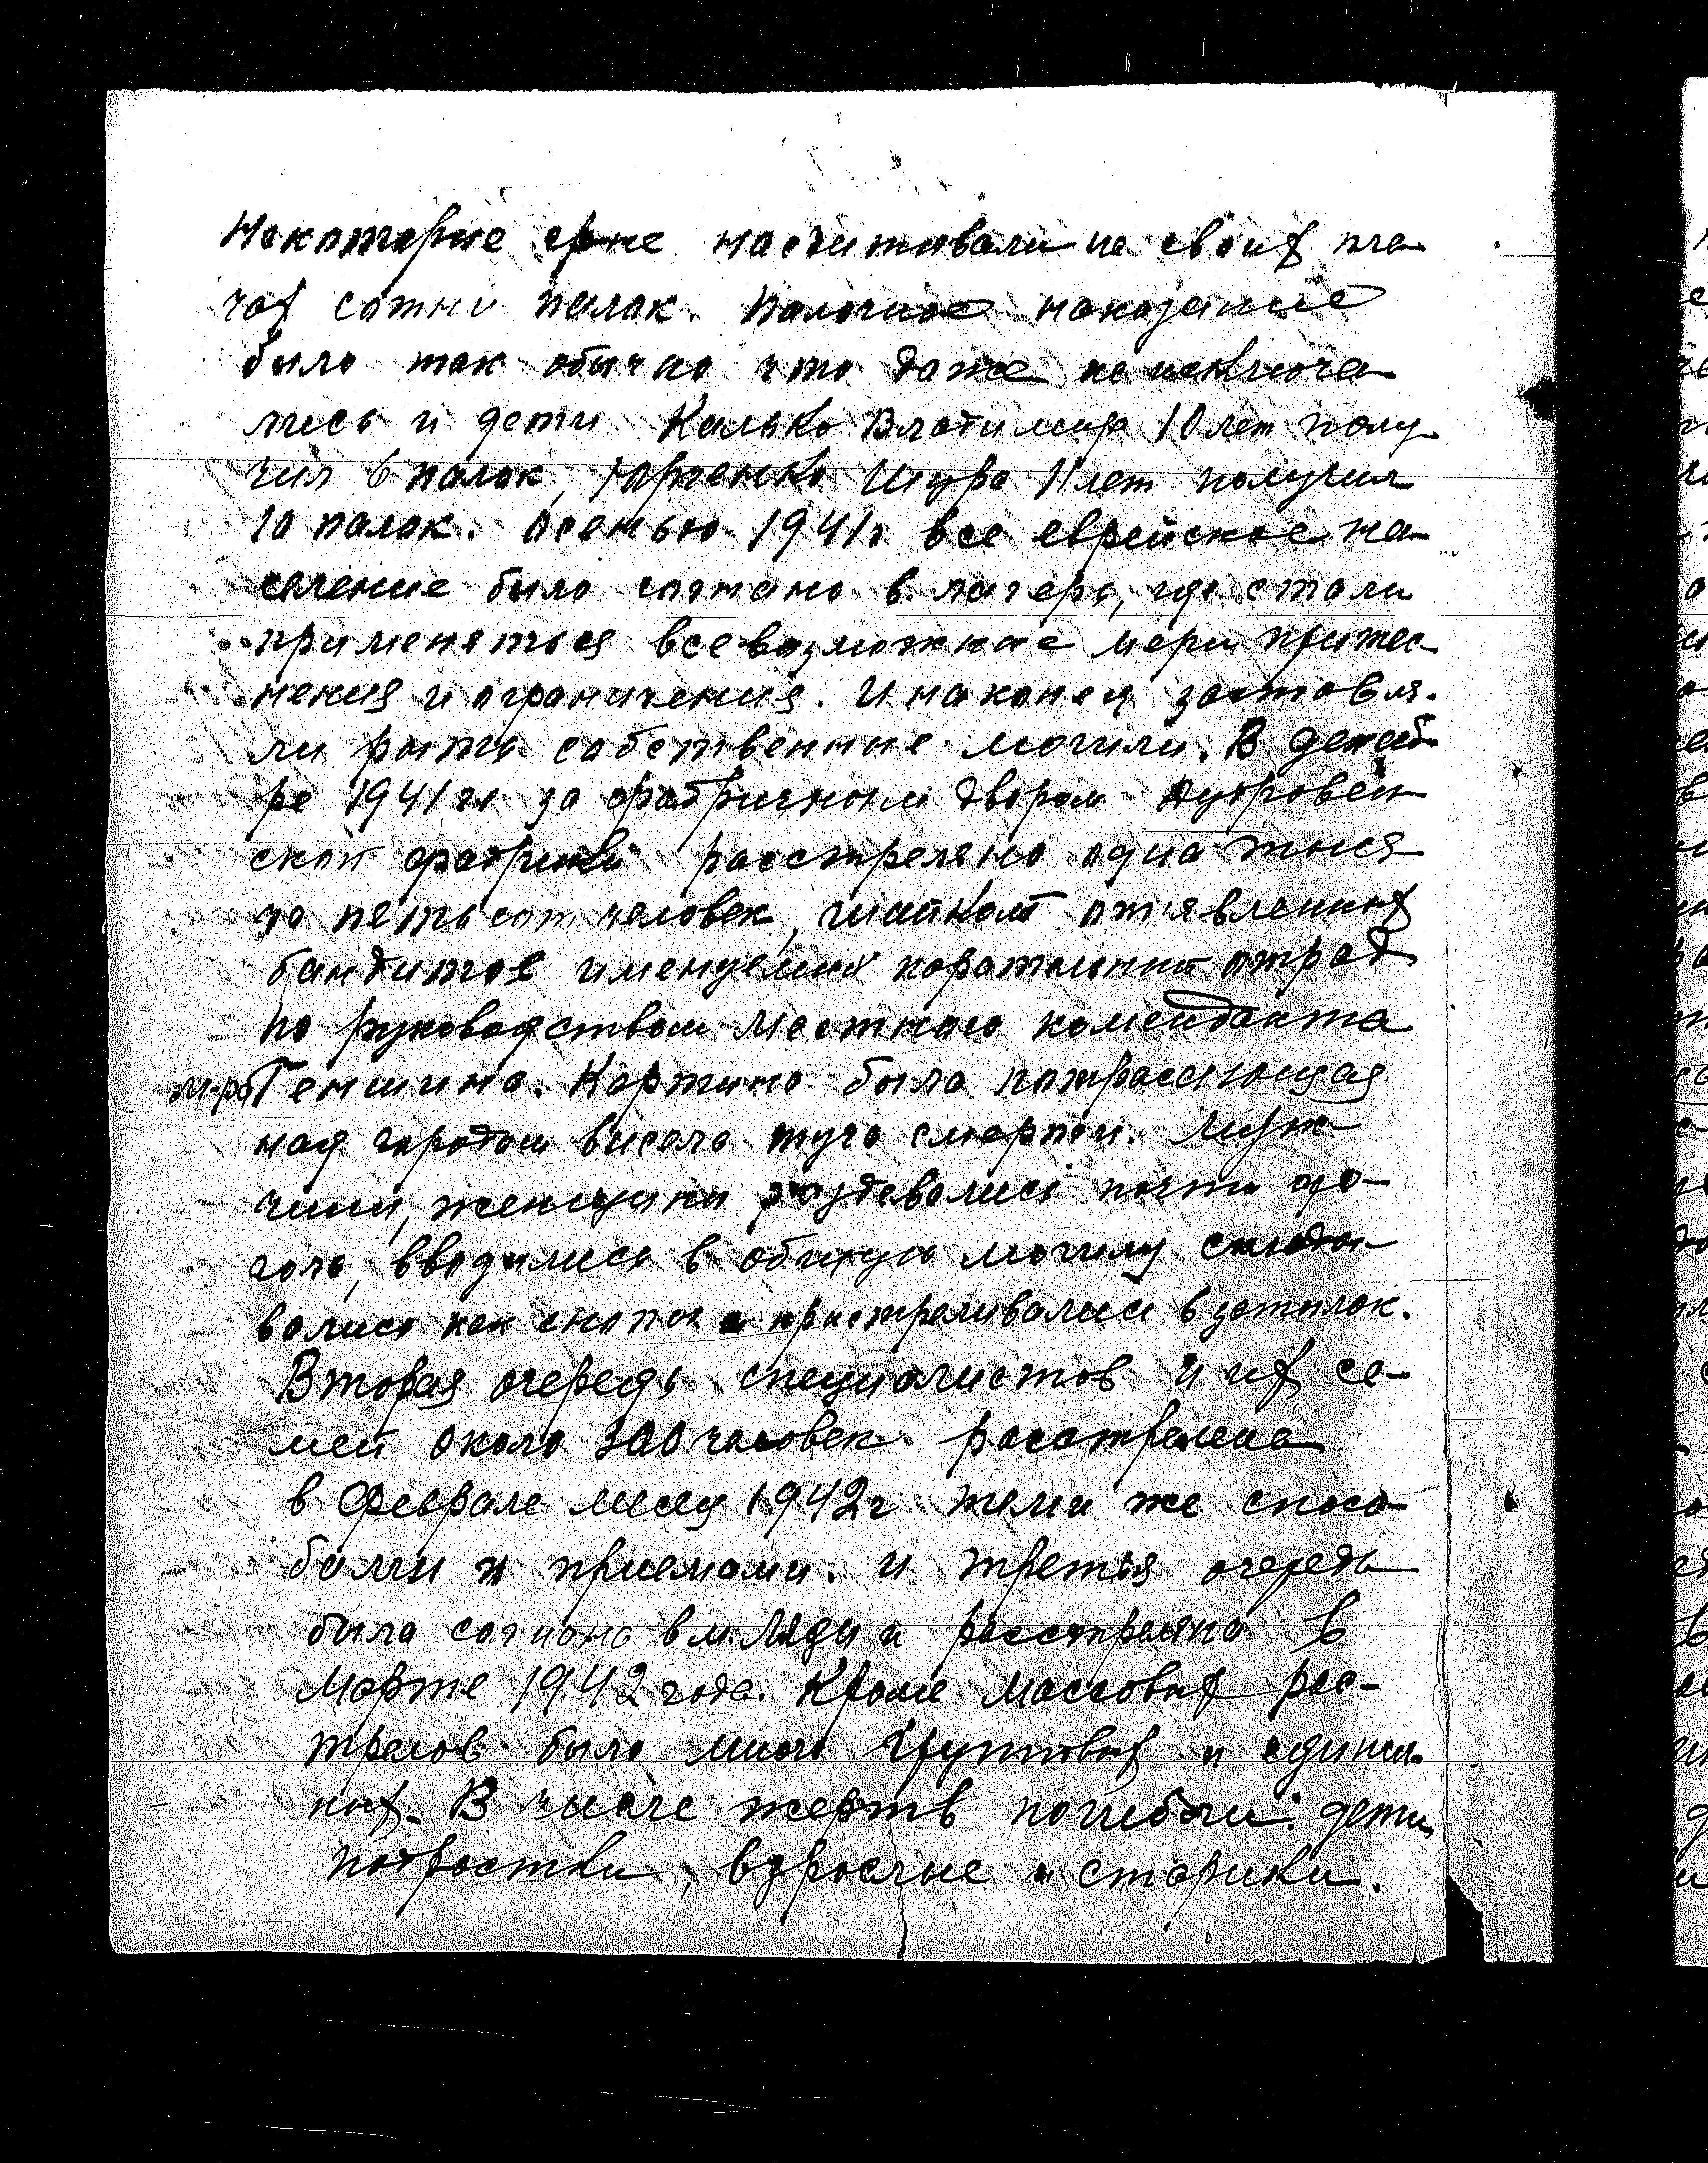 Некоторые насчитывали на своих пле-
чах сотни палок. Палочное наказание
было так обычно что даже не исключа-
лись и дети Калько Владимир 10 лет полу-
чил 6 палок, Юрченко Шура 11 лет получил
10 палок. Осенью 1941г. все еврейское на-
селение было согнано в лагерь, где стали
применяться всевозможные меры притес-
нения и ограничения. И наконец заставля-
ли рыть собственные могилы. В декаб-
ре 1941 г. за фабричным двором Дубровен
ской фабрики расстреляно одна тыся
ча пятьсот человек, шайкой отъявленных
бандитов именуемый каратальный отряд
по руководством местного коменданта
м-ра Геншина. Картина была потрясающая
над городом висела туча смерти. Муж-
чины, женщины раздевались почти до-
гола, вводились в общую могилу складо-
вались как снопы и пристреливались в затылок.
Вторая очередь специалистов и их се-
мей около 300 человек расстреляна
в Феврале месяц 1942г теми же спосо-
бами и приемами. и третья очередь
была согнана в м. Ляды и расстреляна в
Марте 1942 года. Кроме массовых рас-
трелов было много групповых и единич-
ных. В числе жертв погибали: дети,
подростки, взрослые и старики.